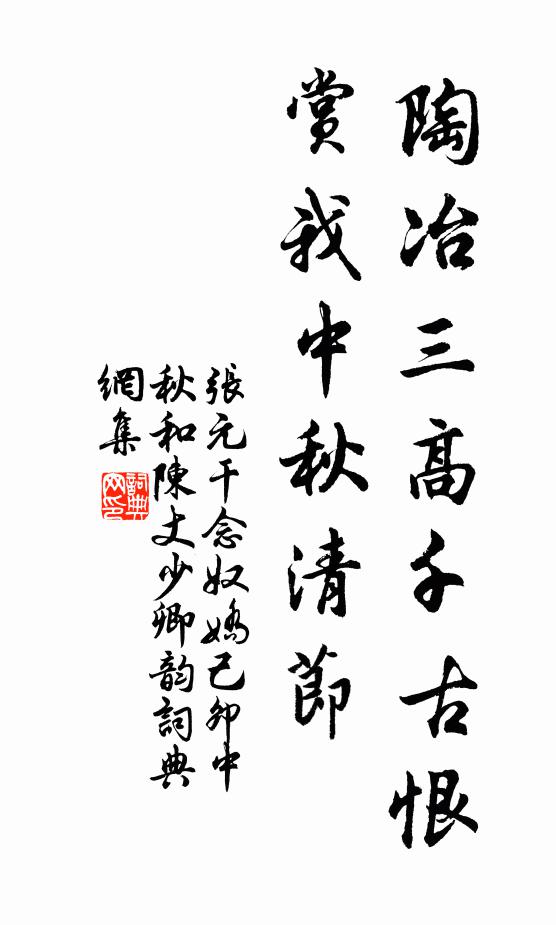 陶冶三高千古恨
賞我中秋清節
張元干念奴嬌己卯中
秋和陳丈少卿韵詞典
網集
詞典
网印